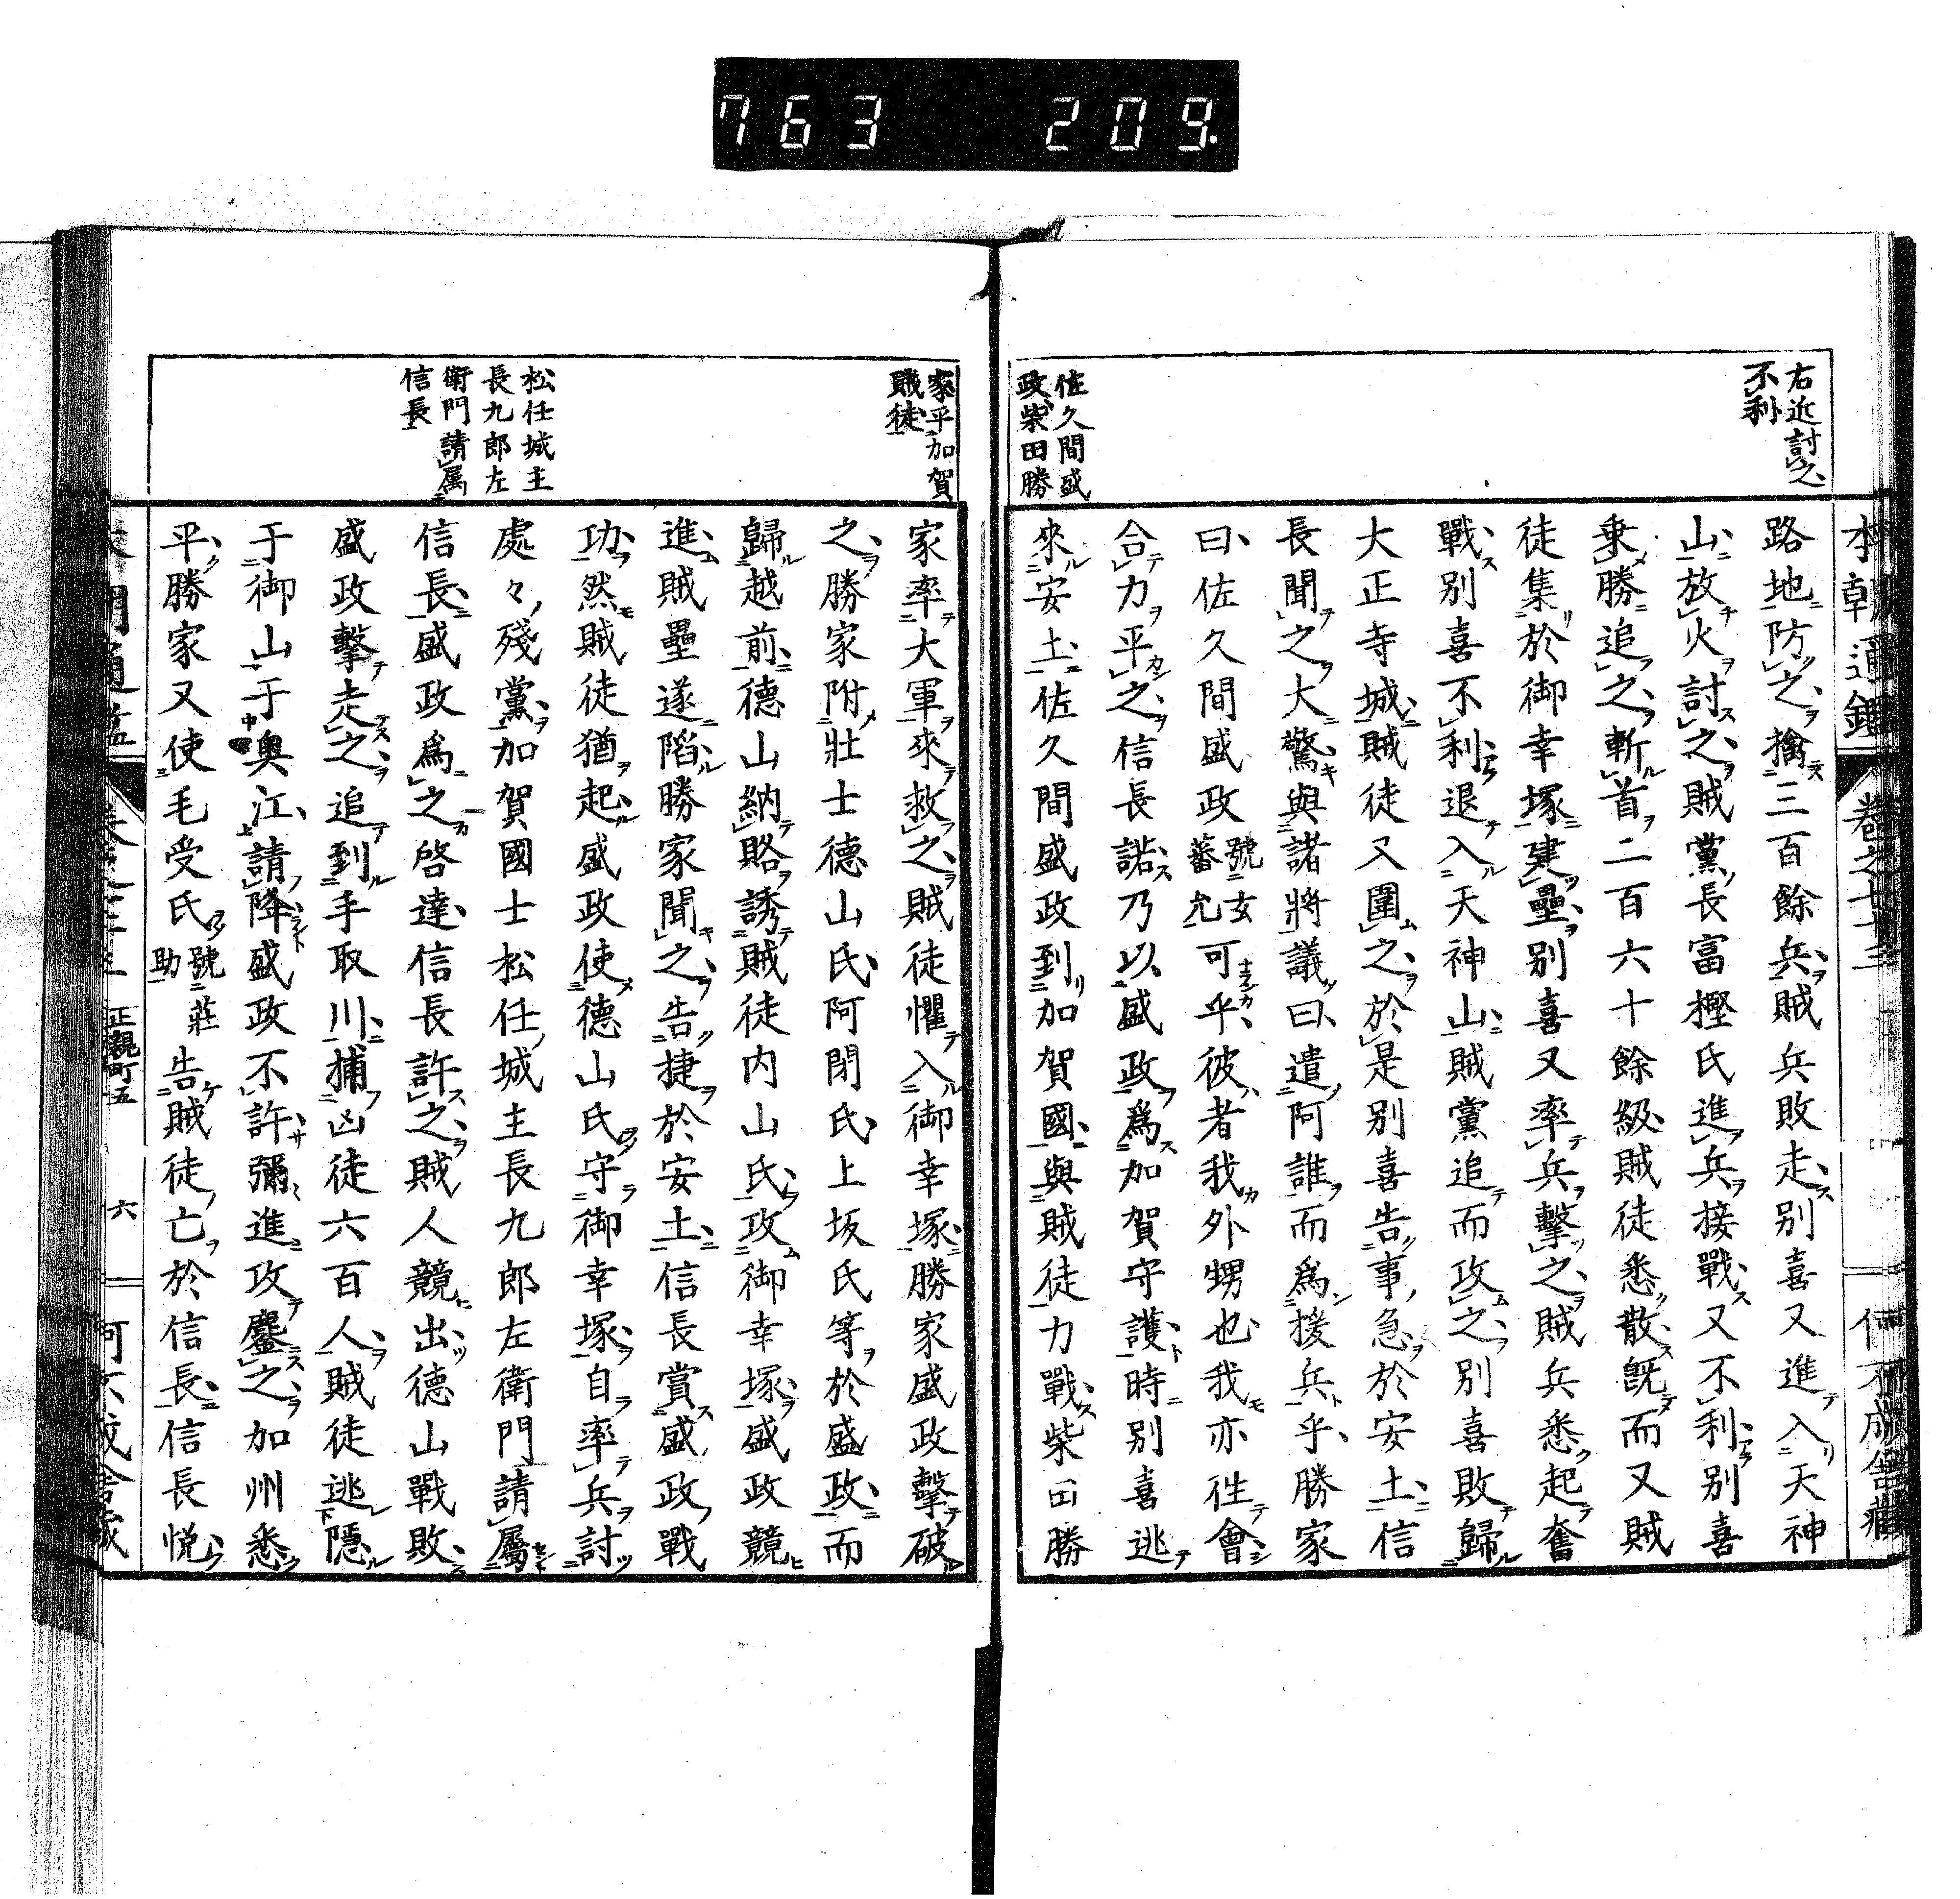 763 209.
本朝通鑑 卷之七十三
右近討之
不利
佐久間盛
政柴田勝
路地防之擒三百餘兵賊兵敗走別喜又進入天神
山放火討之賊黨長富樫氏進兵接戰又不利別喜
乗勝追之斬首二百六十餘級賊徒悉散既而又賊
徒集於御幸塚建壘別喜又率兵擊之賊兵悉起奮
戰別喜不利退入天神山賊黨追而攻之別喜敗歸
大正寺城賊徒又圍之於是別喜告事急於安土信
長聞之大驚與諸將議曰遣阿誰而為援兵乎勝家
曰佐久間盛政號玄蕃允可乎彼者我外甥也我亦徃會
合力平之信長諾乃以盛政為加賀守護時別喜逃
來安土佐久間盛政到加賀國與賊徒力戰柴田勝
家平加賀
賊徒
松任城主
長九郎左
衛門請屬
信長
家率大軍來救之賊徒懼入御幸塚勝家盛政擊破
之勝家附壯士德山氏阿閉氏上坂氏等於盛政而
歸越前德山納賂誘賊徒内山氏攻御幸塚盛政競
進賊壘遂陷勝家聞之告捷於安土信長賞盛政戰
功然賊徒猶起盛政使德山氏守御幸塚自率兵討
處々殘黨加賀國士松任城主長九郎左衛門請屬
信長盛政為之啓達信長許之賊人競出德山戰敗
盛政擊走之追到手取川捕凶徒六百人賊徒逃隱
于御山于中奧江請降盛政不許彌進攻鏖之加州悉
平勝家又使毛受氏號莊助告賊徒亡於信長信長悦
正親町五 六